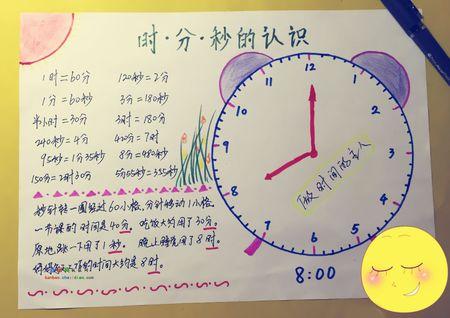 时·分·秒的认识
1时=60分 120秒=2分
1分=60秒 3分=180秒
半小时=30分 3时=180分
240秒=4分 420分=7时
95秒=1分35秒 8分=480秒
150分=2时30分 5分55秒=355秒
秒针转一圈经过60小格,分针移动1小格。
一节课的时间是40分。吃饭大约用了30分。
原地跳一下用了1秒。晚上睡觉用了8时。
时间大约是8时。
12
1
2
3
4
5
6
7
8
9
10
11
做时间的主人
8:00